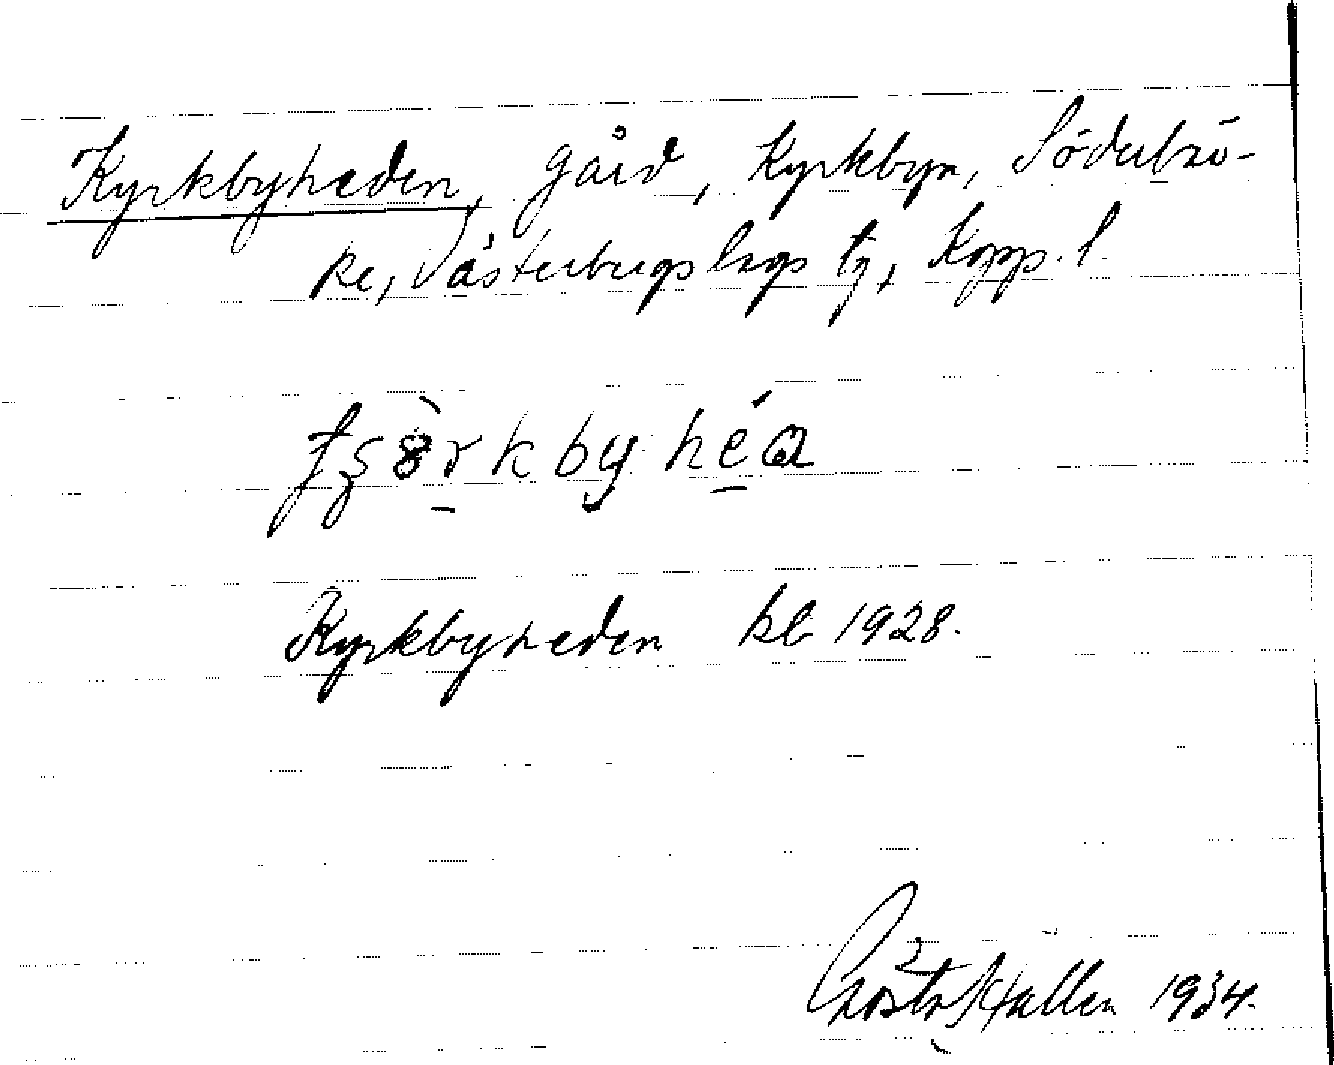 Kyrkbyheden, gård, Kyrkbyn, Söderbär-
ke, Västerbergslags tg, Kopp. l.
Kyrkbyheden kb 1928.
Gösta Hallen 1934.